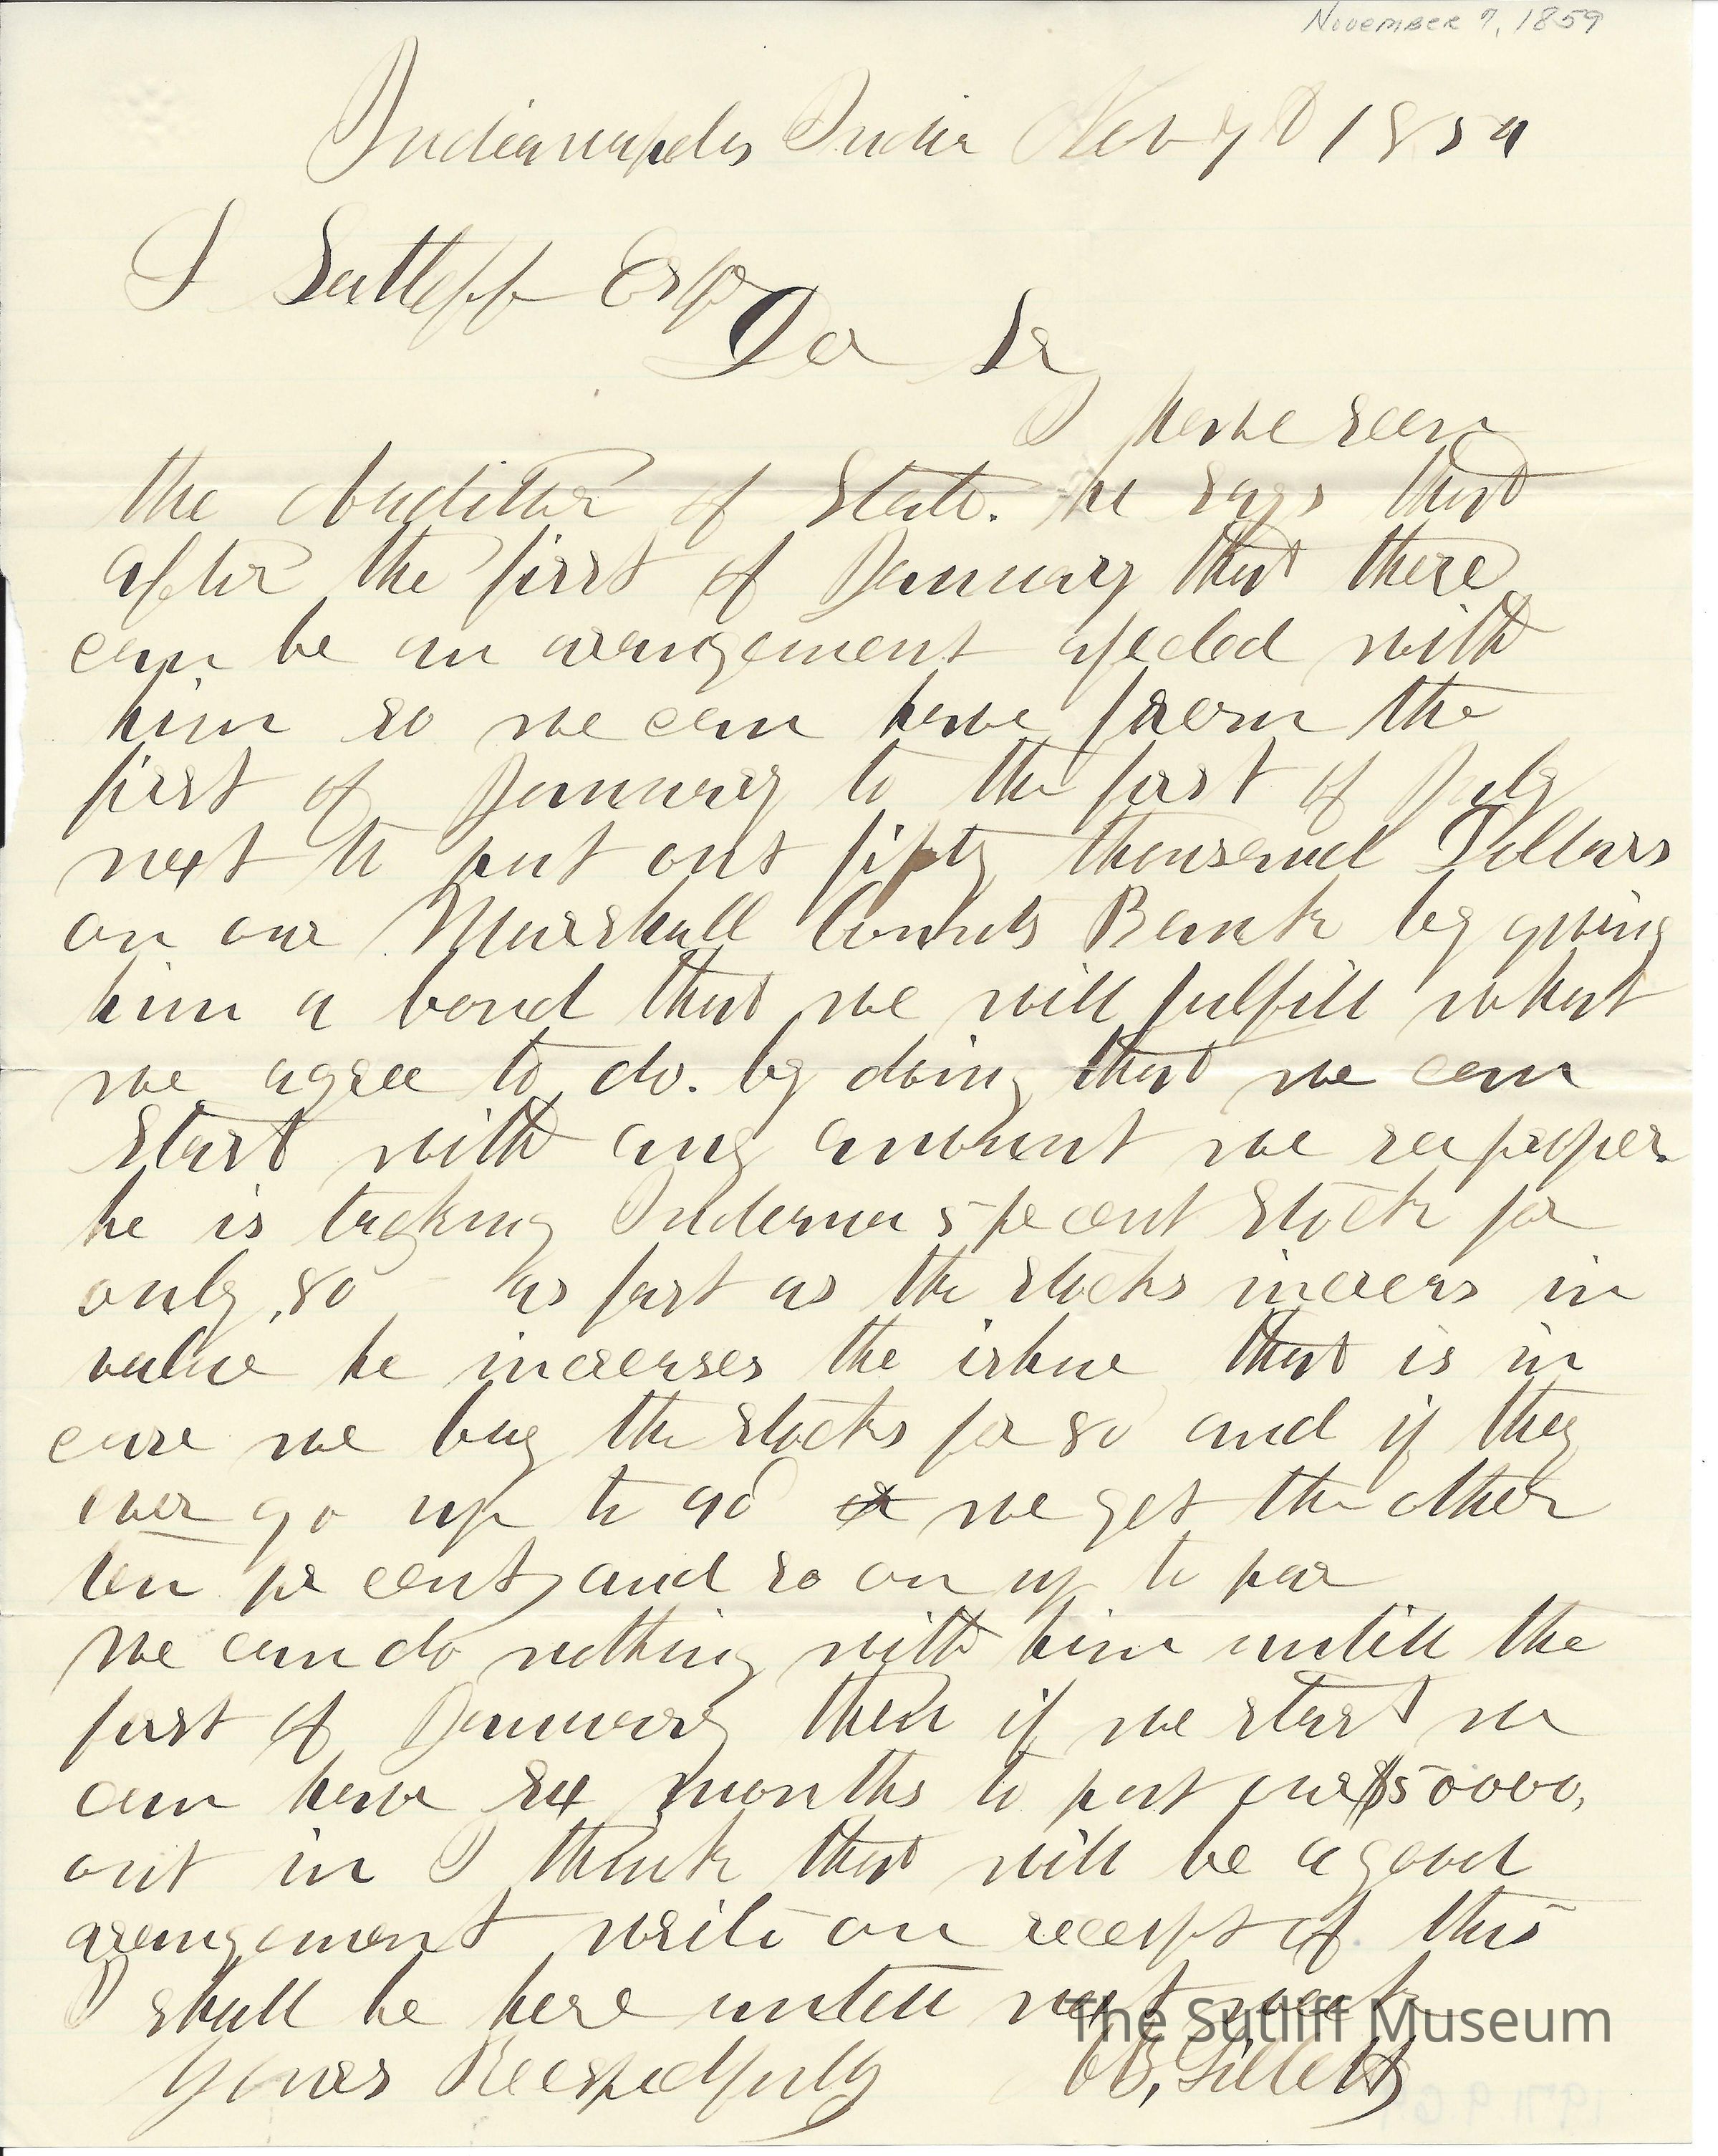 November 7, 1859
Indianapolis India Nov 7th 1859
L Sutleff Esqr
Dear Sir
I have seen
the Auditor of State. he says that
after the first of January that there
can be an arangement afected with
him so we can have from the
first of January to the first of July
next to put out fifty thousand Dollars
on our Marshall County Bank by giving
him a bond that we will fulfill what
we agree to do. by doing that we can
Start with any amount we see proper.
he is tacking Indianna 5 pe cent Stock for
only .80 - as fast as the stocks increas in
value he increases the ishue that is in
case we buy the stocks for 80 and if they
ever go up to 90 we get the other
ten pr cent, and so on up to par
we can do nothing with him untill the
first of January then if we start we
can have months to put our $50000,
out in I think that will be a good
arangement write on receipt of this
I shall be here untill next week
Yours Respectfully
B, Gillett
The Sutliff Museum